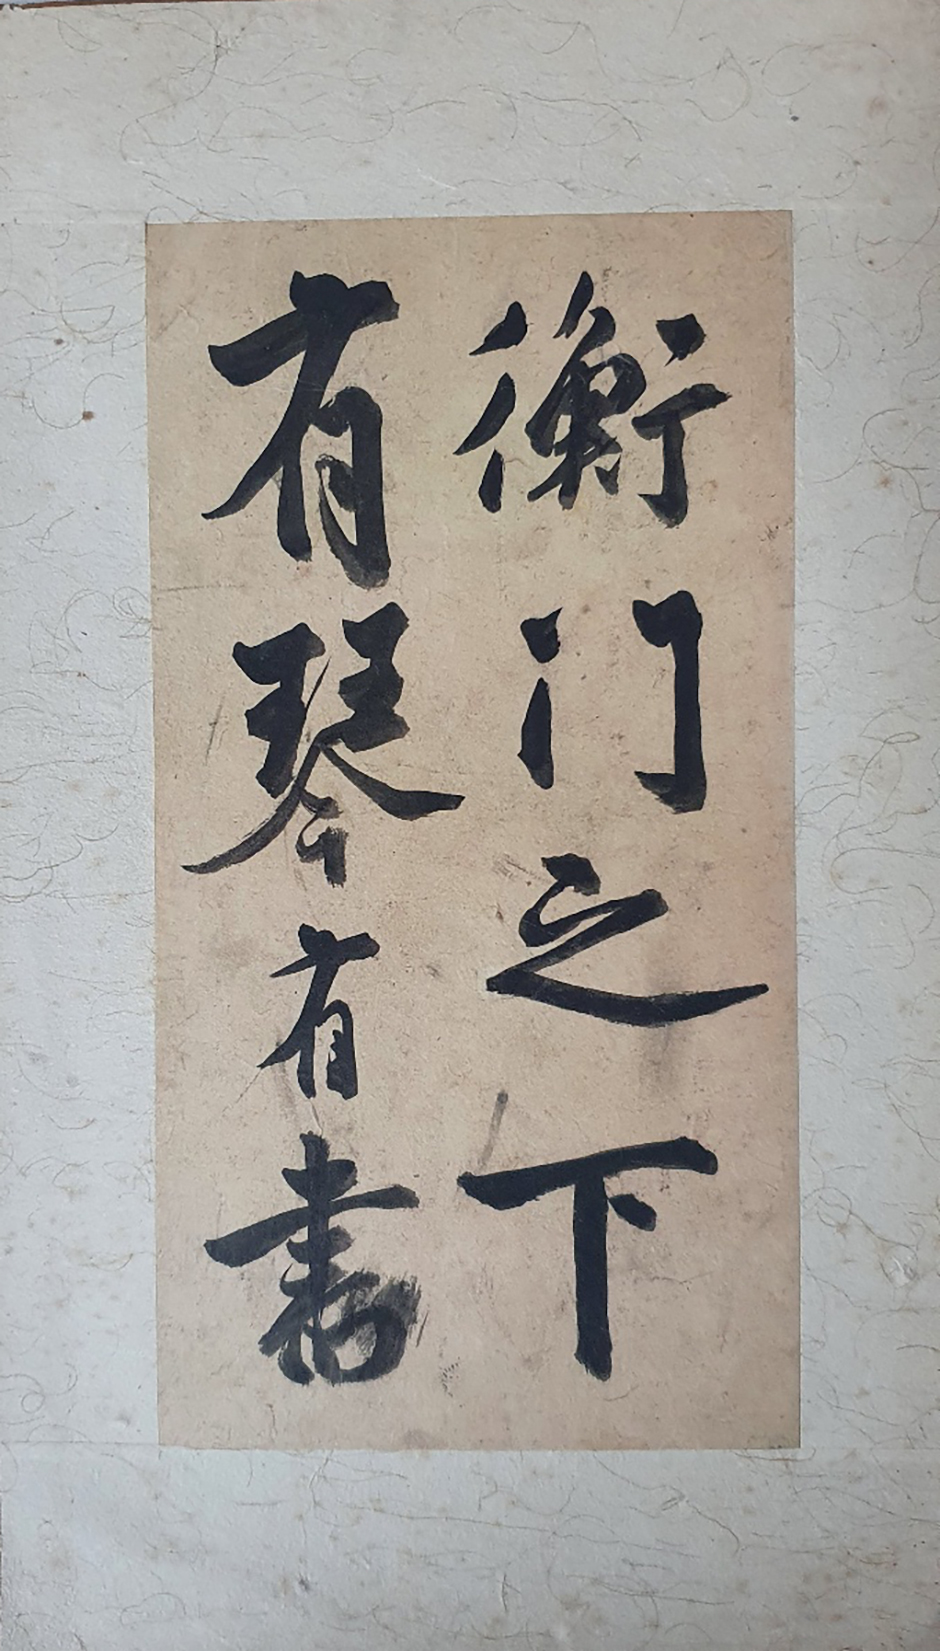 衡门之下
有琴有書